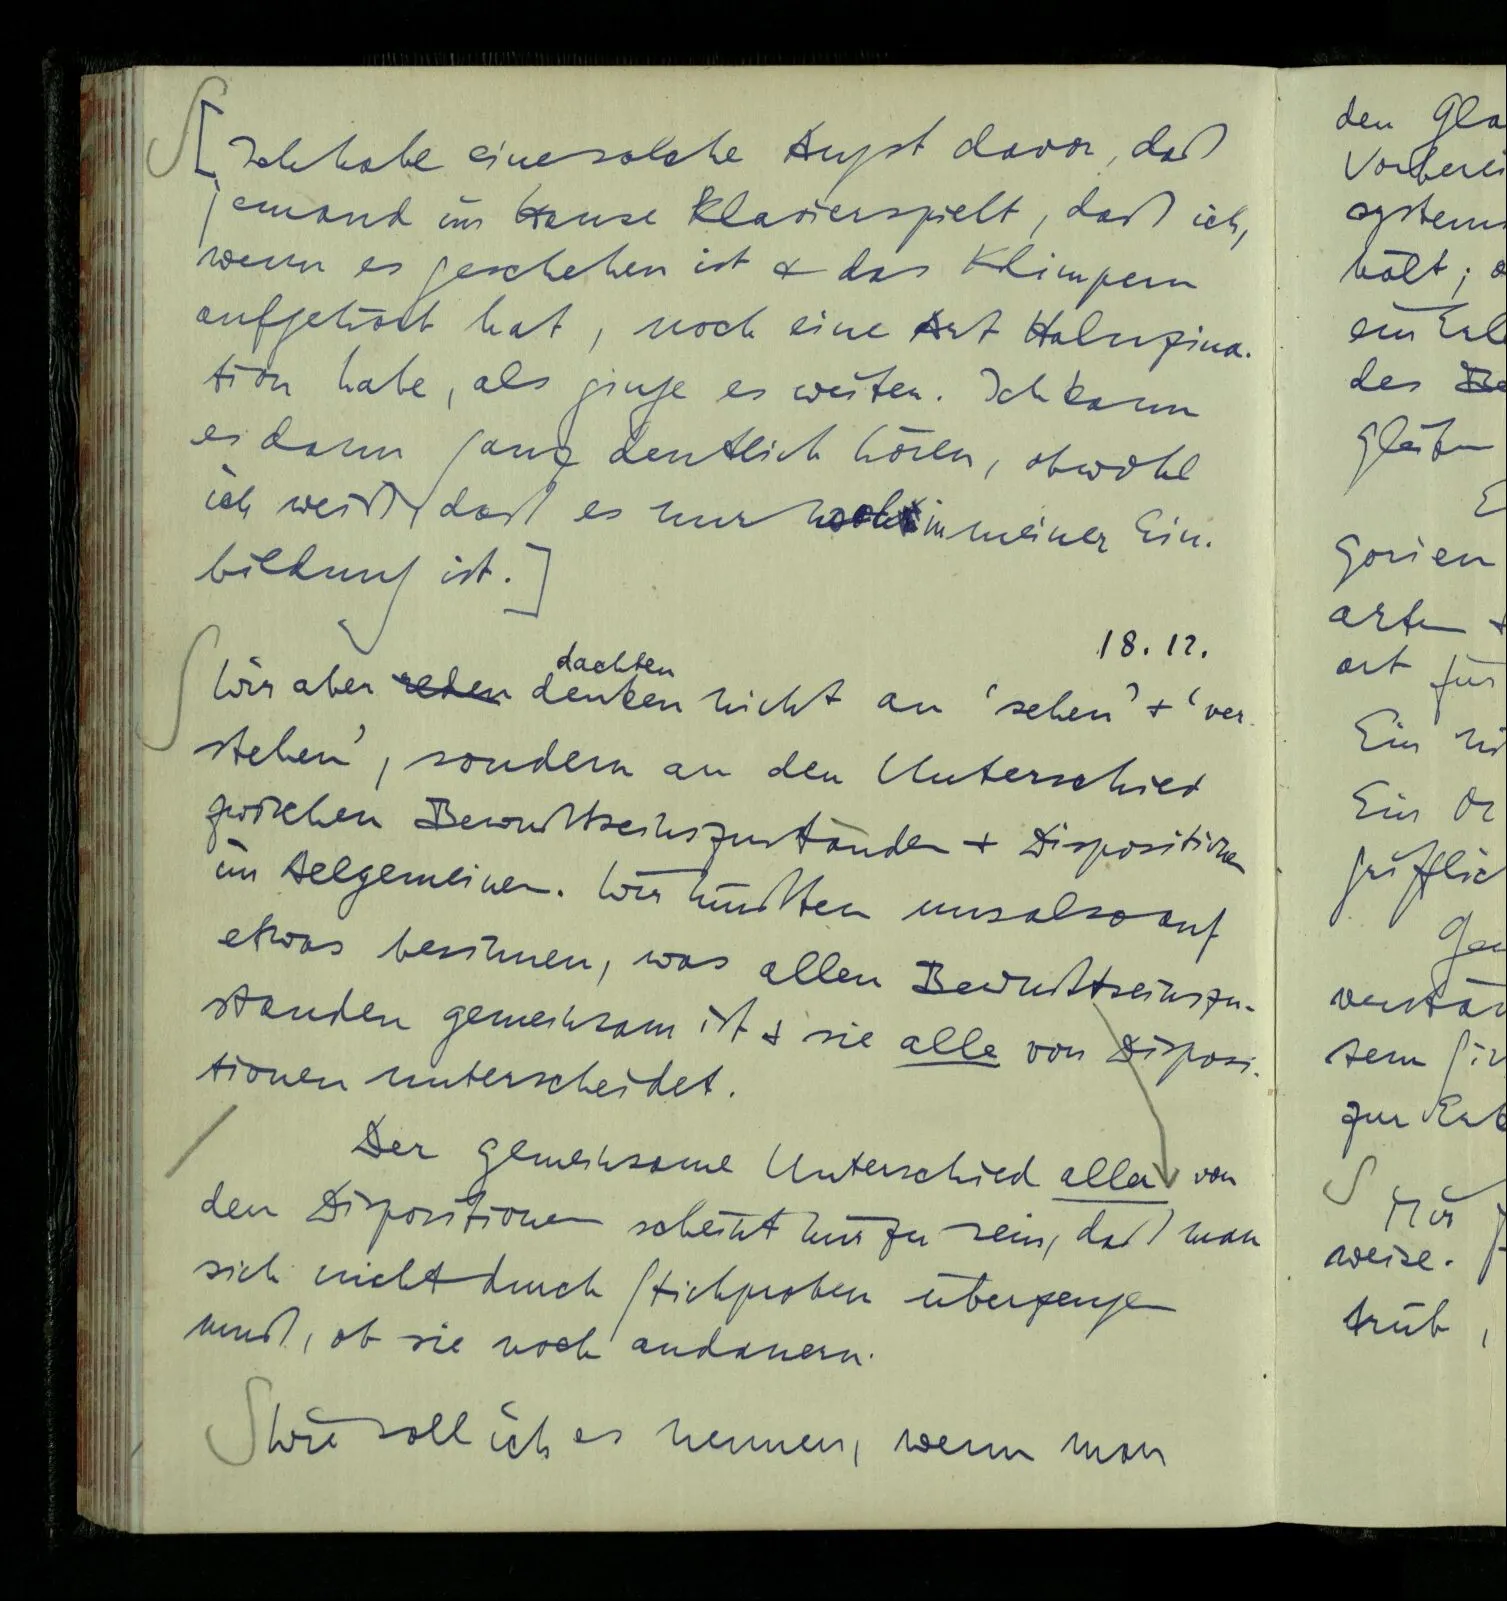 [Ich habe eine solche Angst davor, daß
jemand im Hause Klavierspielt, daß ich,
wenn es geschehen ist & das Klimpern
aufgehört hat, noch eine Art Haluzina-
tion habe, als ginge es weiter. Ich kann
es dann ganz deutlich hören, obwohl
ich weiß, daß es nur in meiner Ein-
bildung ist.]
18.12.
dachten
Wir aber reden denken nicht an ‘sehen’ & ‘ver-
stehen’, sondern an den Unterschied
zwischen Bewußtseinszuständen & Dispositionen
im Allgemeinen. Wir mußten uns also auf
etwas besinnen, was allen Bewußtseinszu-
standen gemeinsam ist & sie alle von Disposi-
tionen unterscheidet.
Der gemeinsame Unterschied aller von
den Dispositionen scheint mir zu sein, daß man
sich nicht durch Stichproben überzeugen
muß, ob sie noch andauern.
Wie soll ich es nennen, wenn man
den Gla
Vorberei
systems
hält;
ein Erl
des
E
gorien
arten &
art für
Ein
Ein
griffflic
verstän
sem
zur
Mir
weise.
trüb,